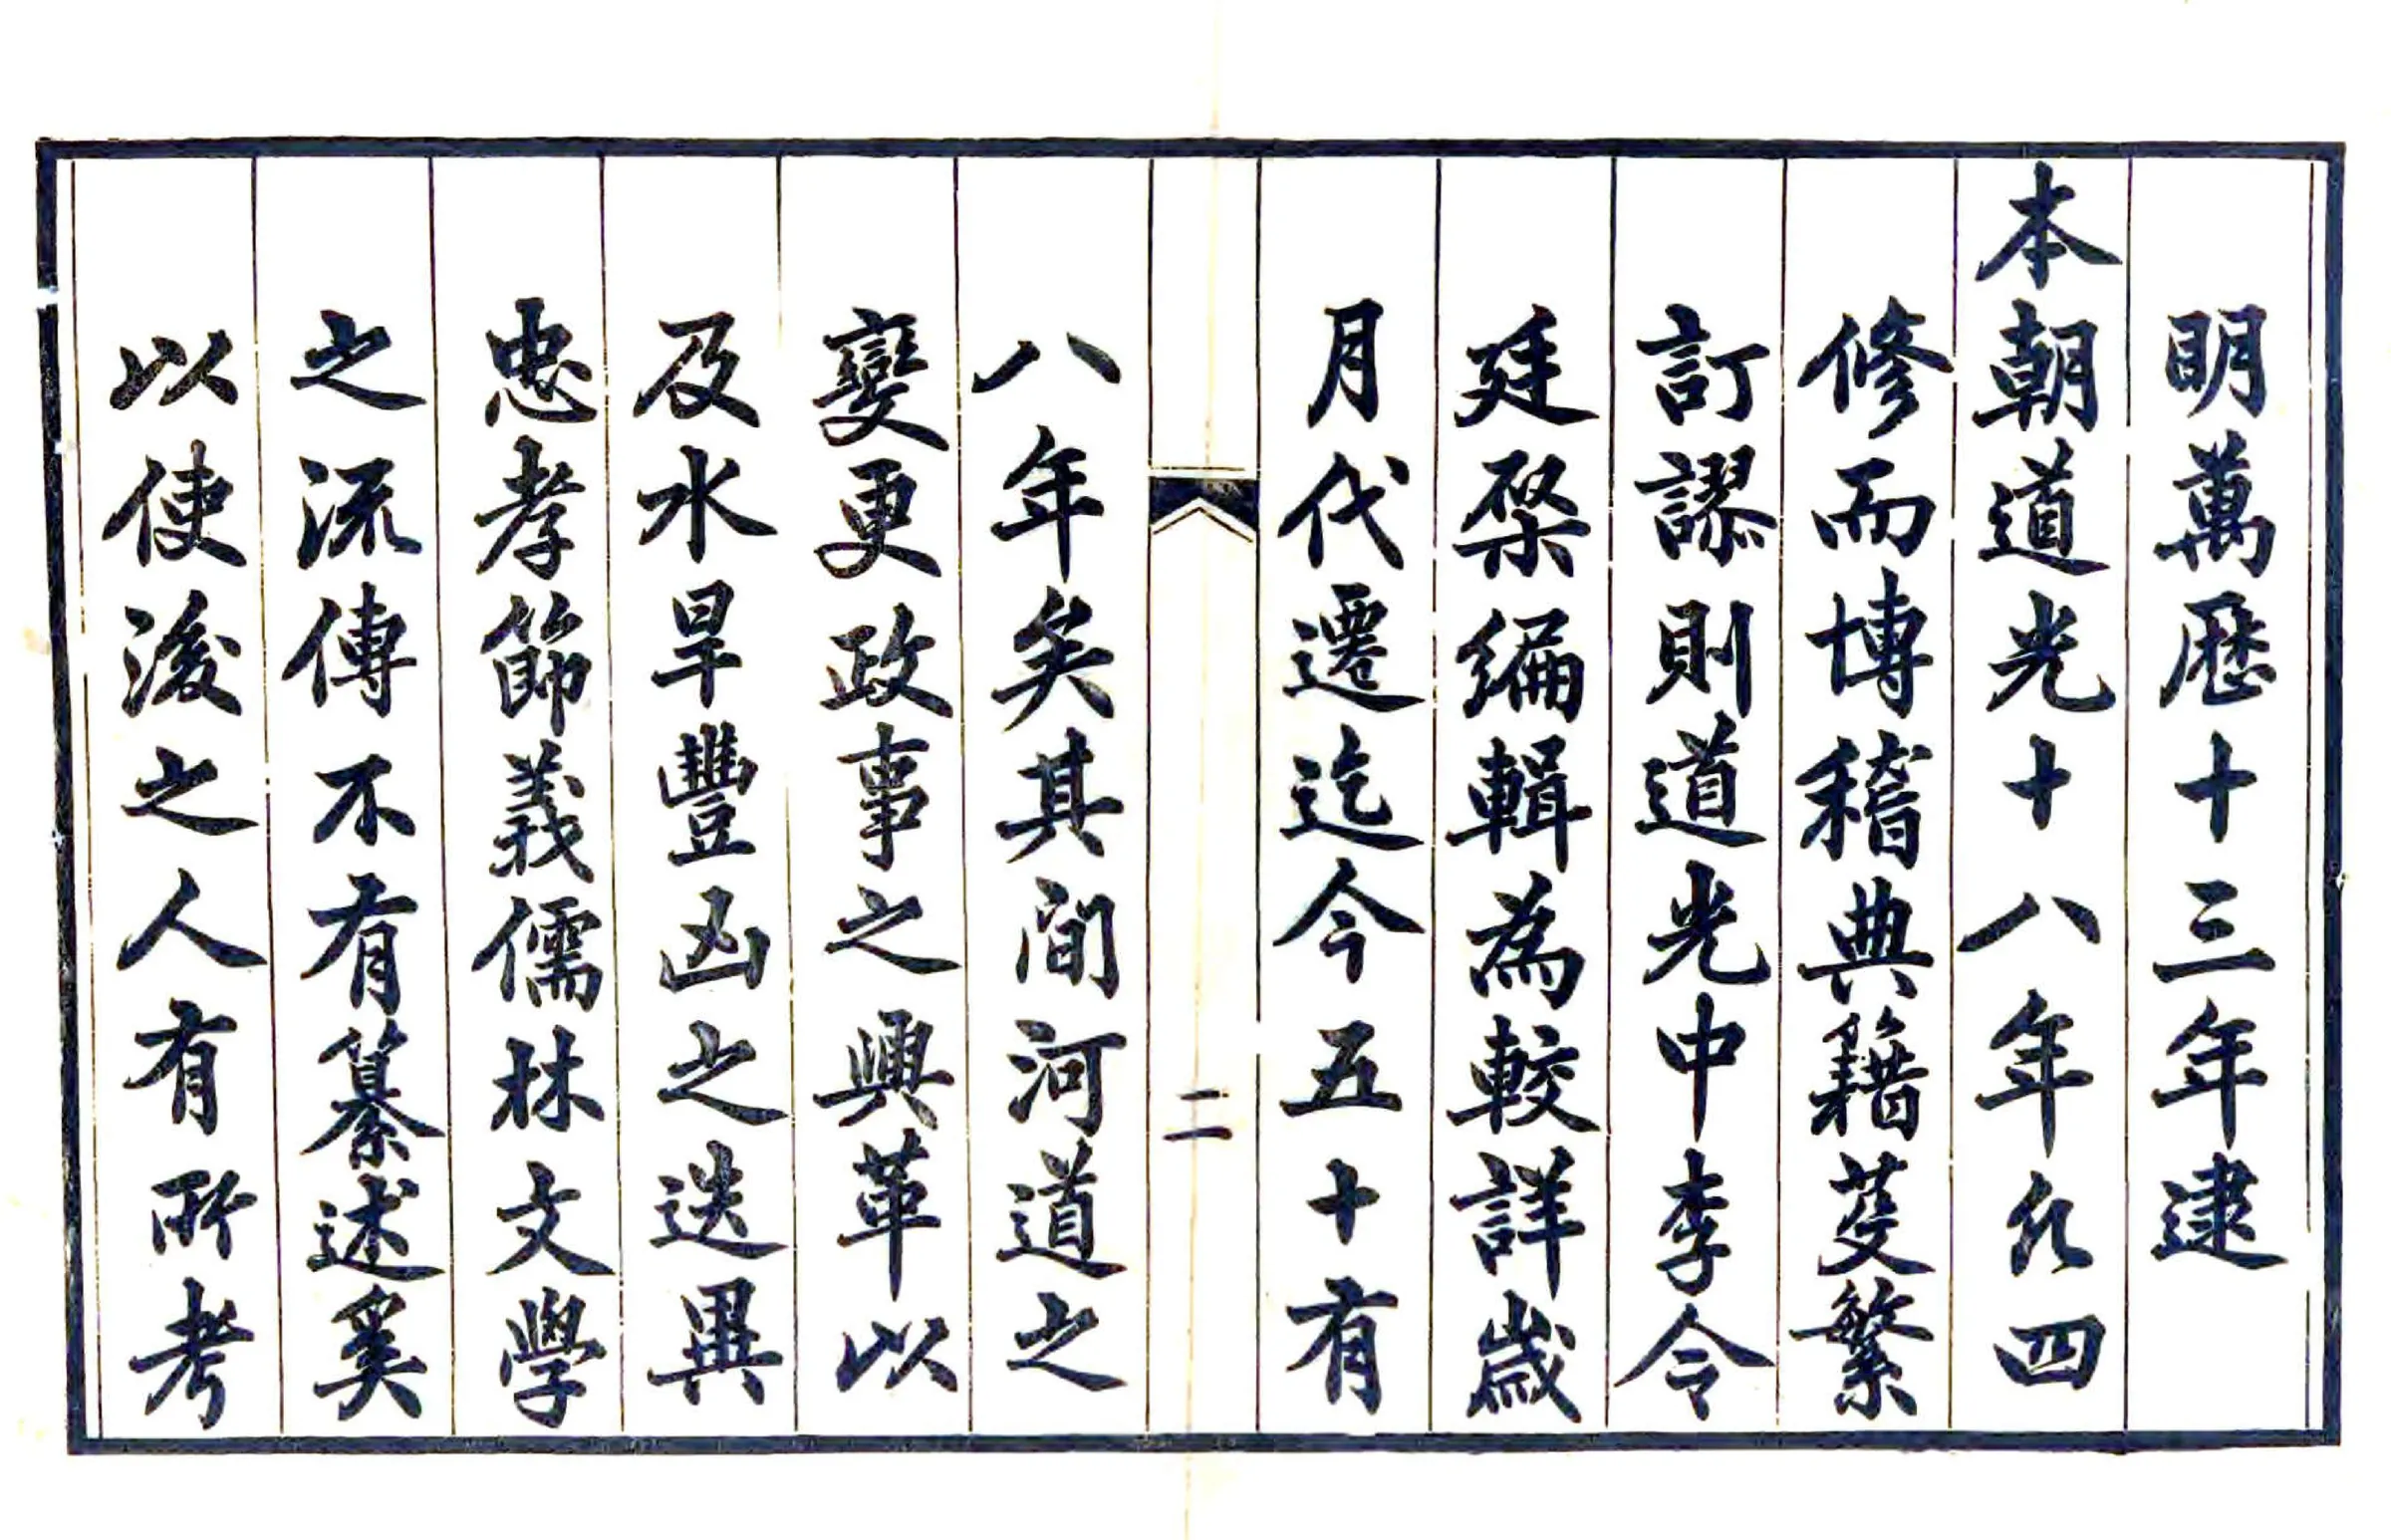 明萬歷十三年逮
本朝道光十八年凡四
修而博稽典籍芟繁
訂謬則道光中李令
廷棨編輯為較詳歲
月代遷迄今五十有
二
八年矣其間河道之
變更政事之興革以
及水旱豐凶之迭異
忠孝節義儒林文學
之流傳不有纂述奚
以使後之人有所考